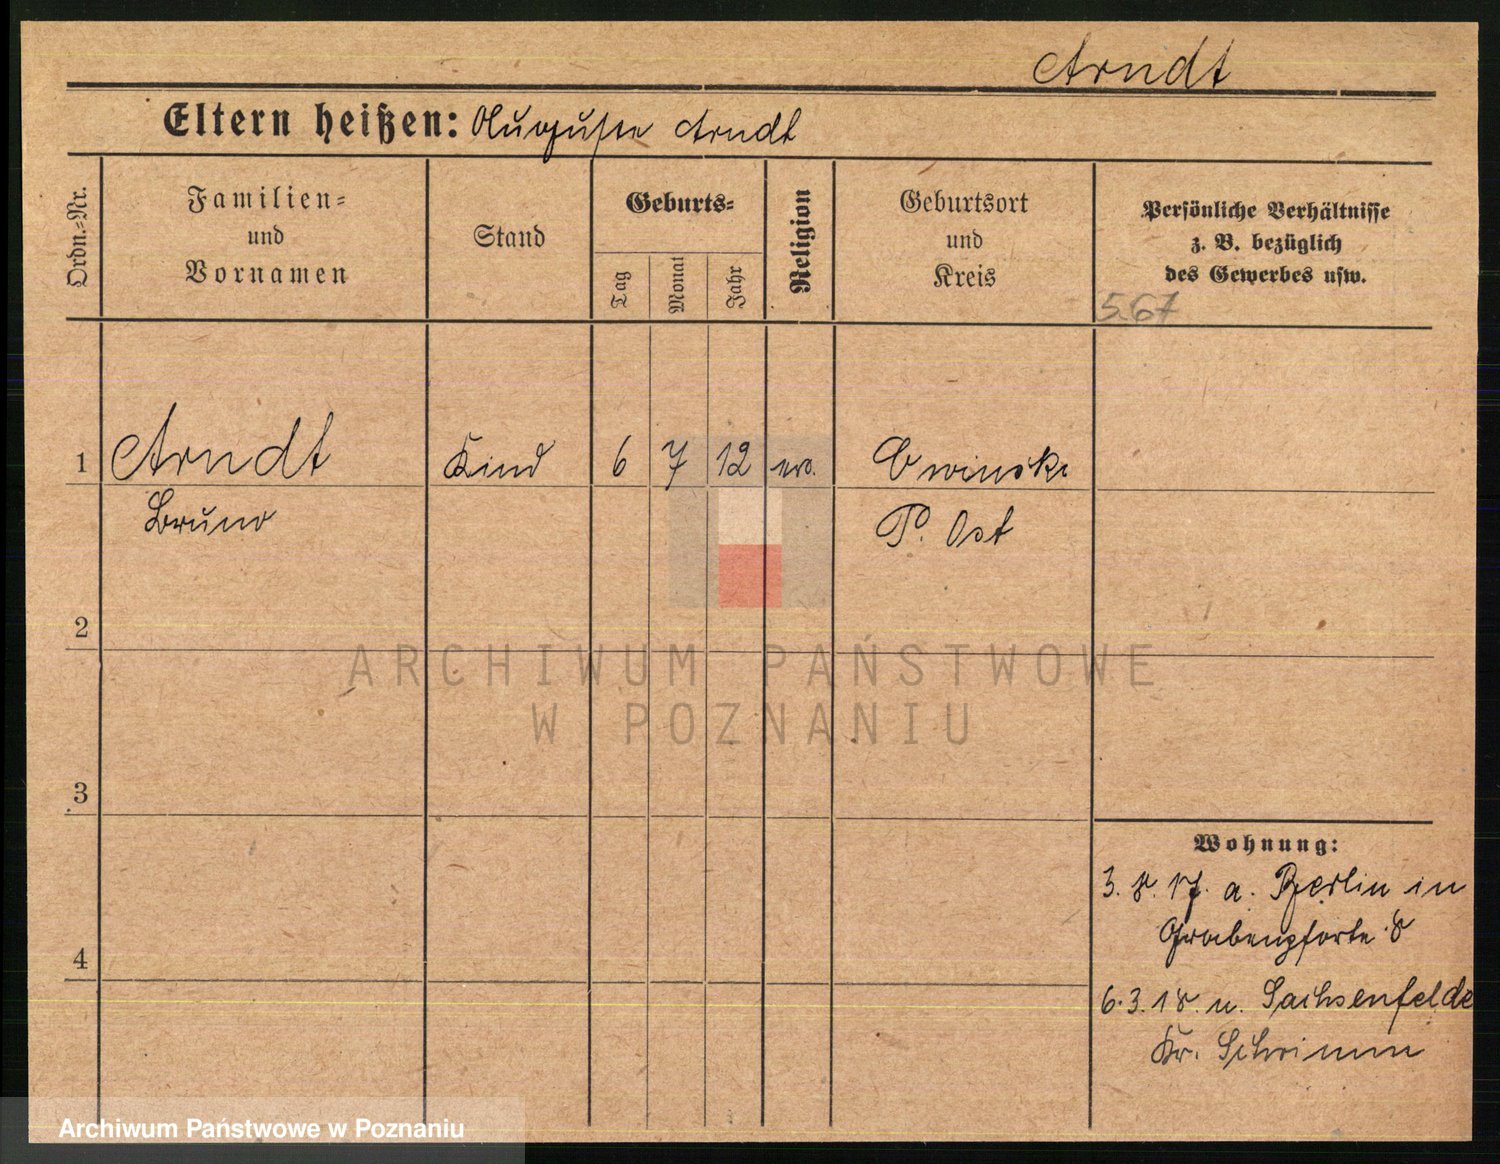 Arndt
Eltern heißen: Auguste Arndt
Ordn.-Nr.
Familien-
und
Vornamen
Stand
Geburts-
Tag
Monat
Jahr
Religion
Geburtsort
und
Kreis
Persönliche Verhältnisse
z. B. bezüglich
des Gewerbes usw.
567
1 Arndt Kind 6 7 12 ev. Owinsk
Bruno P. Ost
2
ARCHIWUM PAŃSTWOWE
W POZNANIU
3
Wohnung:
3. 8. 17. a. Berlin in
Grabenpforte 8
4
6. 3. 18. n. Sachsenfelde
Kr. Schrimm
Archiwum Państwowe w Poznaniu